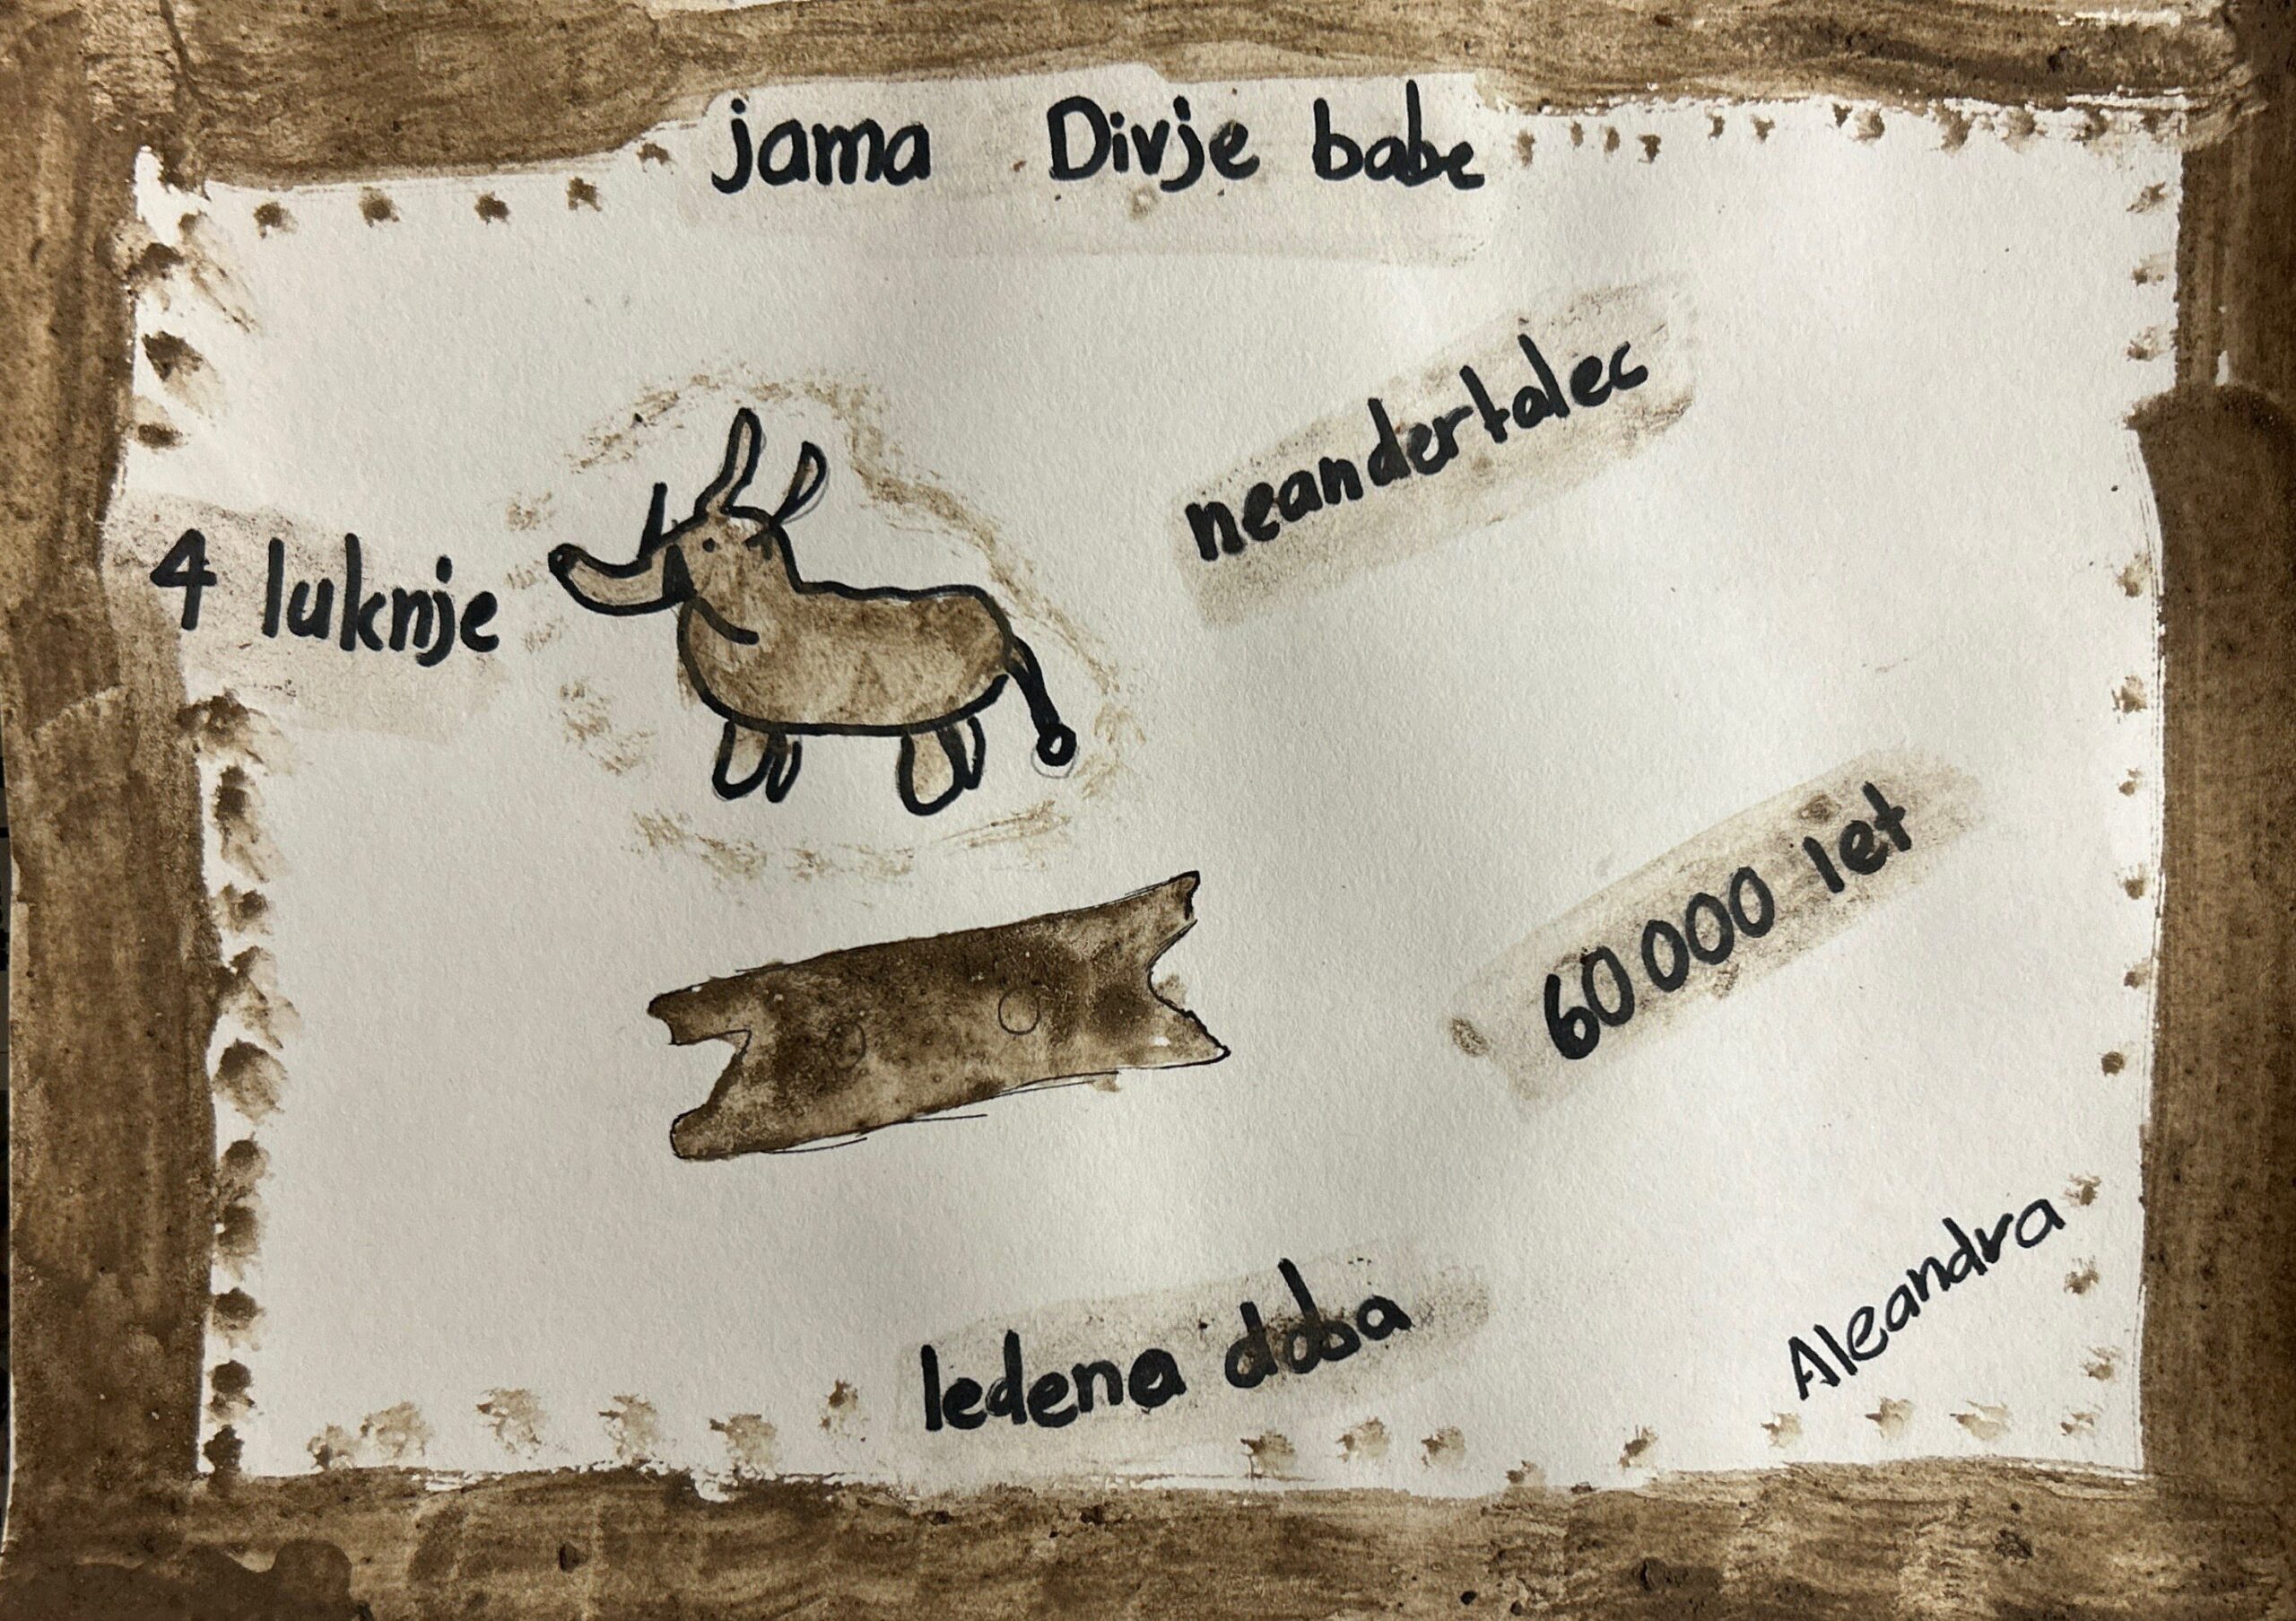 jama Divje babe
neandertalec
4 luknje
60 000 let
ledena doba
Aleandra